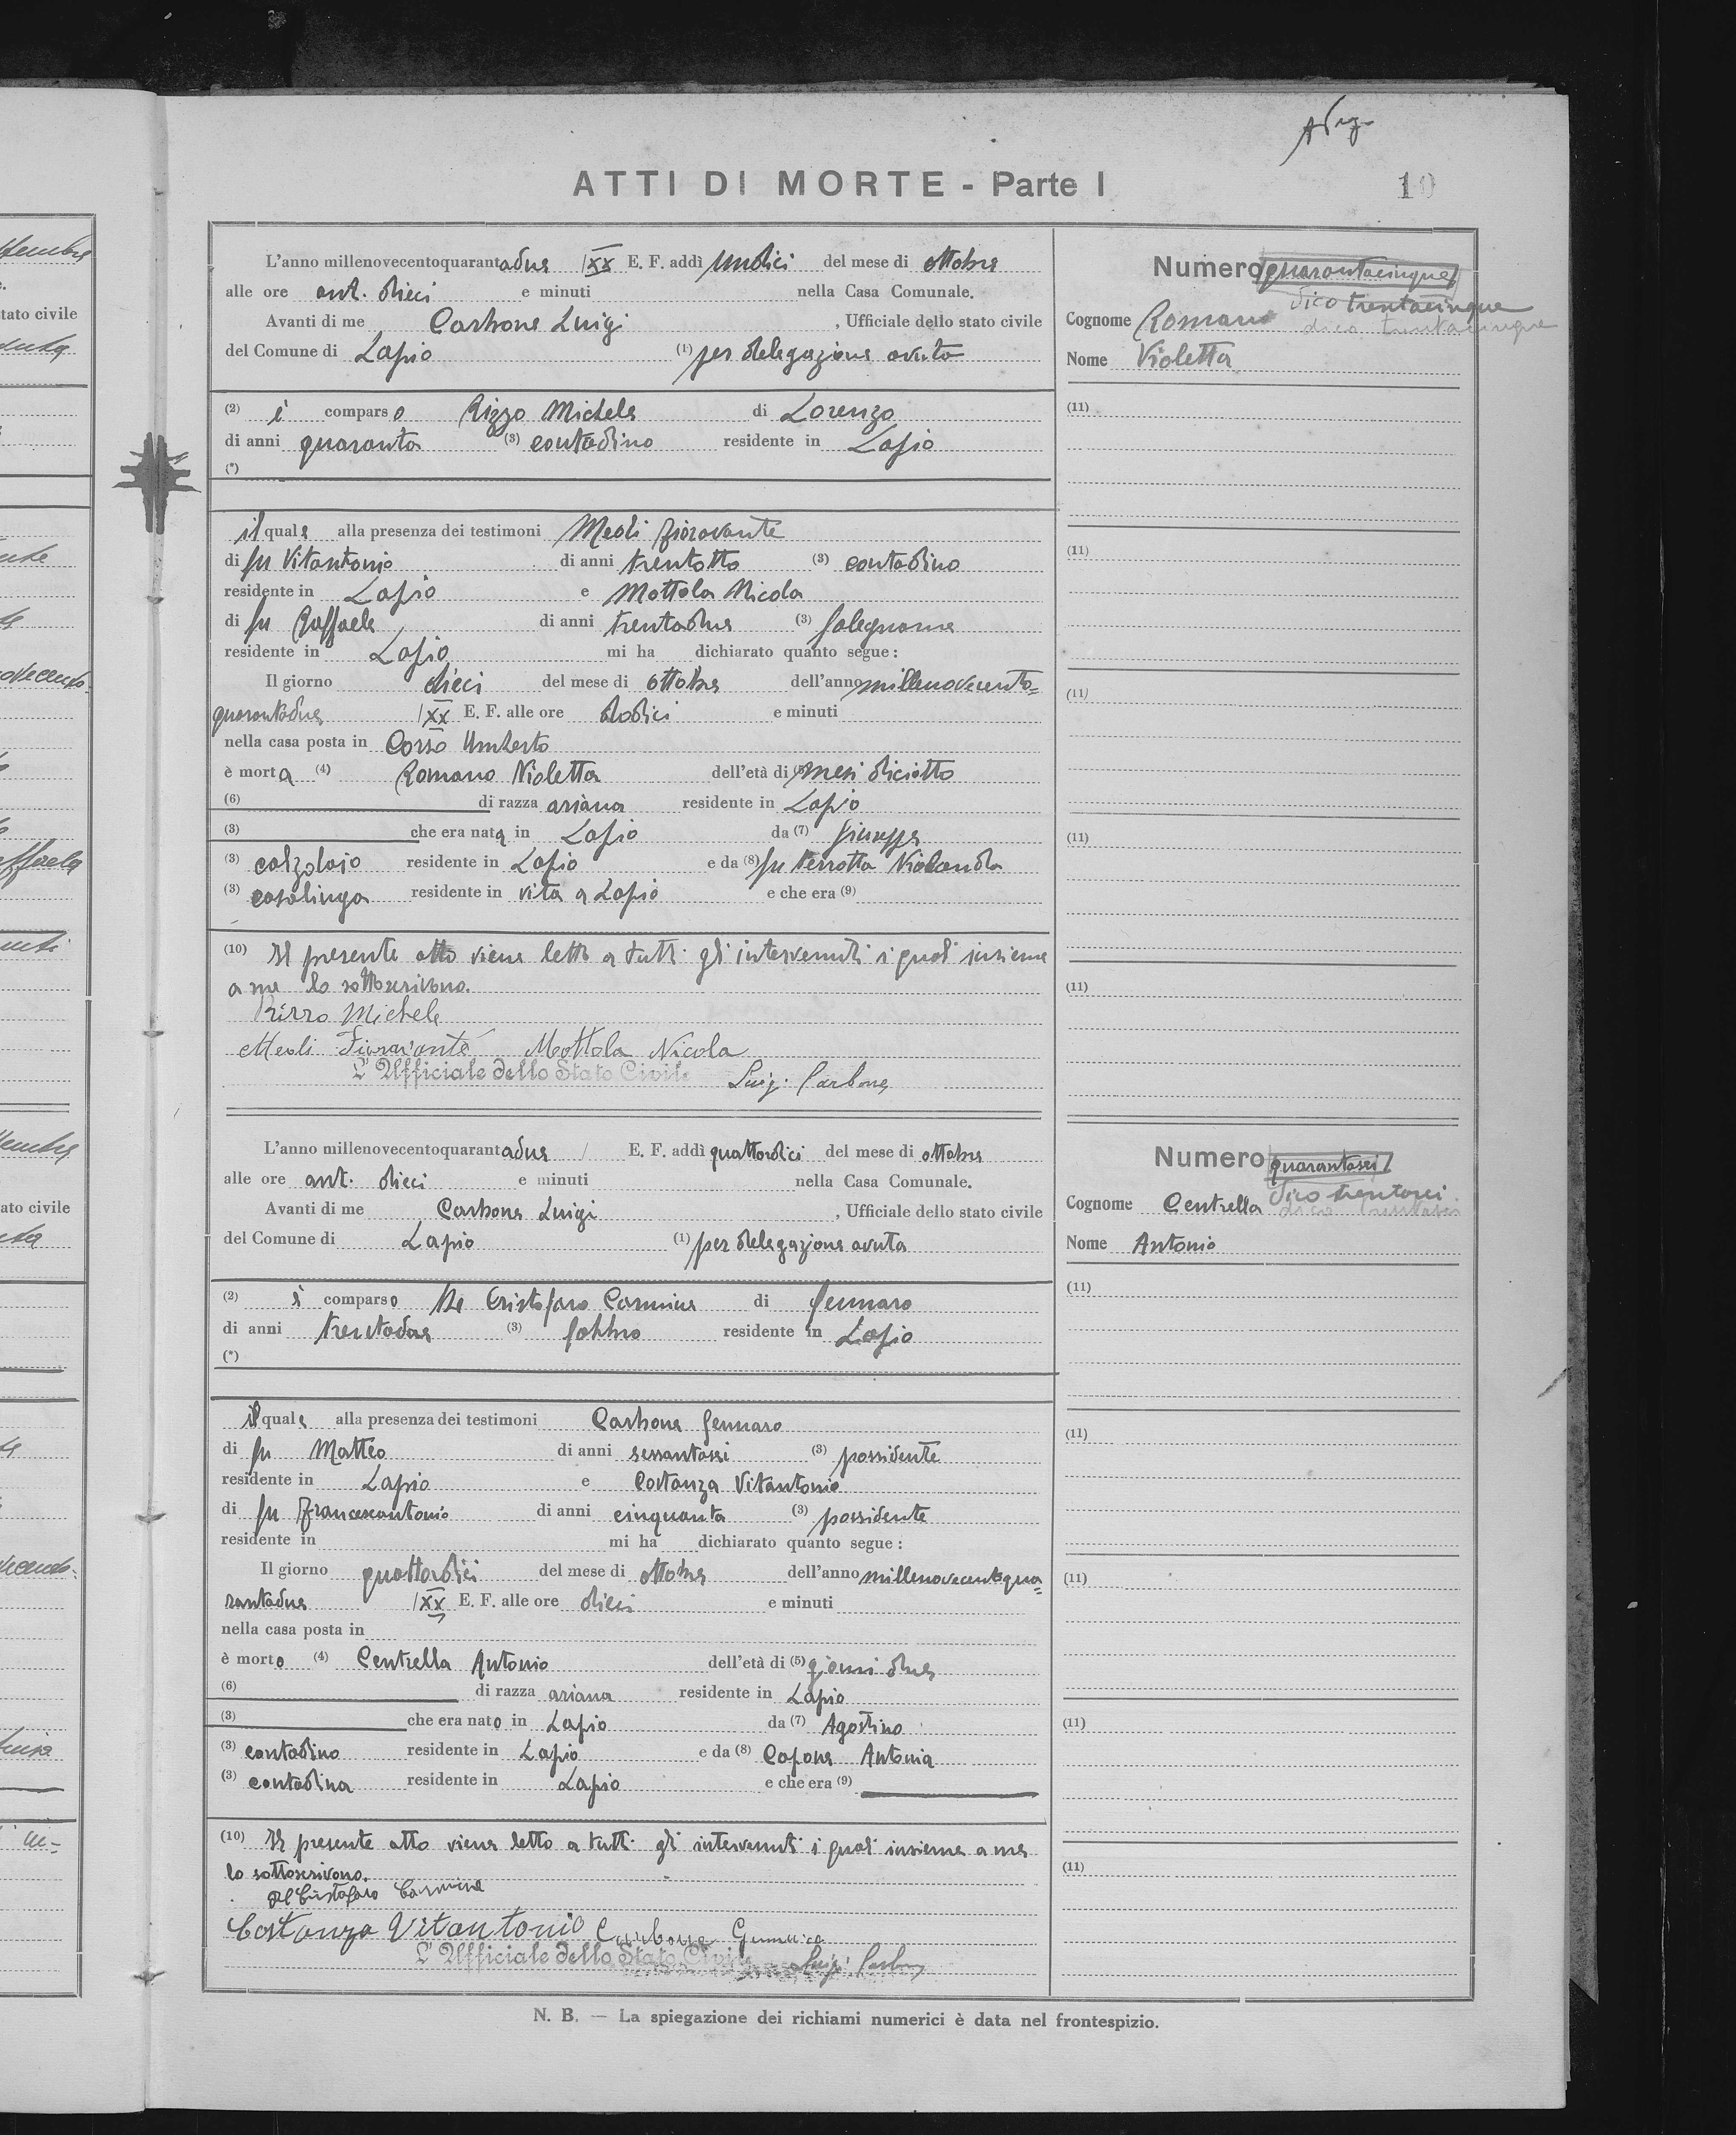 ATTI DI MORTE - Parte I
10
L'anno millenovecentoquarantadue XX E. F. addì undici del mese di ottobre
alle ore ant. dieci e minuti nella Casa Comunale.
Avanti di me Carbone Luigi , Ufficiale dello stato civile
del Comune di Lapio (1) per delegazione avuta
(2) è comparso Rizzo Michele di Lorenzo
di anni quaranta (3) contadino residente in Lapio
(*)
il quale alla presenza dei testimoni Meoli Fioravante
di fu Vitantonio di anni trentotto (3) contadino
residente in Lapio e Mottola Nicola
di fu Raffaele di anni trentadue (3) falegname
residente in Lapio mi ha dichiarato quanto segue :
Il giorno dieci del mese di ottobre dell'anno millenovecento=
quarantadue XX E. F. alle ore dodici e minuti
nella casa posta in Corso Umberto
è morta (4) Romano Violetta dell'età di (5) mesi diciotto
(6) di razza ariana residente in Lapio
(3) che era nata in Lapio da (7) Giuseppe
(3) calzolaio residente in Lapio e da (8) fu Perrotta Violanda
(3) casalinga residente in vita a Lapio e che era (9)
(10) Il presente atto viene letto a tutti gli intervenuti i quali insieme
a me lo sottoscrivono.
Rizzo Michele
Meoli Fioravante Mottola Nicola
L'Ufficiale dello Stato Civile Luigi Carbone
Numero quarantacinque
dico trentacinque
dico trentacinque
Cognome Romano
Nome Violetta
(11)
(11)
(11)
(11)
(11)
L'anno millenovecentoquarantadue / E. F. addì quattordici del mese di ottobre
alle ore ant. dieci e minuti nella Casa Comunale.
Avanti di me Carbone Luigi , Ufficiale dello stato civile
del Comune di Lapio (1) per delegazione avuta
(2) è comparso De Cristofaro Carmine di Gennaro
di anni trentadue (3) fabbro residente in Lapio
(*)
il quale alla presenza dei testimoni Carbone Gennaro
di fu Matteo di anni sessantasei (3) possidente
residente in Lapio e Costanza Vitantonio
di fu Francescantonio di anni cinquanta (3) possidente
residente in mi ha dichiarato quanto segue :
Il giorno quattordici del mese di ottobre dell'anno millenovecentoqua=
rantadue XX E. F. alle ore dieci e minuti
nella casa posta in
è morto (4) Centrella Antonio dell'età di (5) giorni due
(6) di razza ariana residente in Lapio
(3) che era nato in Lapio da (7) Agostino
(3) contadino residente in Lapio e da (8) Capone Antonia
(3) contadina residente in Lapio e che era (9)
(10) Il presente atto viene letto a tutti gli intervenuti i quali insieme a me
lo sottoscrivono.
De Cristofaro Carmine
Costanza Vitantonio Carbone Gennaro
L'Ufficiale dello Stato Civile Luigi Carbone
Numero quarantasei
dico trentasei
dico trentasei
Cognome Centrella
Nome Antonio
(11)
(11)
(11)
(11)
(11)
N. B. — La spiegazione dei richiami numerici è data nel frontespizio.